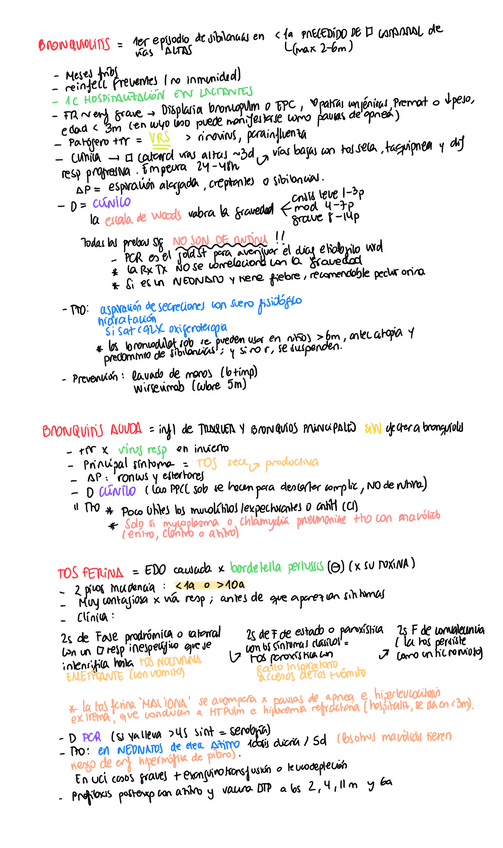 BRONQUIOLITIS = 1er episodio de sibilancias en <1a PRECEDIDO DE □ CATARRAL de
vías ALTAS (max 2-6m)
- Meses fríos
- reinfecc frecuentes (no inmunidad)
- 1C HOSPITALIZACIÓN EN LACTANTES
- FR → enf grave → Displasia broncopulm o EPC, patías congénitas, Premat o ↓peso,
edad < 3m (en cuyo caso puede manifestarse como pausas de apnea)
- Patógeno +fr = VRS > rinovirus, parainfluenza
- CLÍNICA → □ catarral vías altas ~3d → vías bajas con tos seca, taquipnea y dif
resp progresiva. Empeora 24-48h
AP = espiración alargada, crepitantes o sibilancias.
- D = CLÍNICO
la escala de Woods valora la gravedad
crisis leve 1-3p
mod 4-7p
grave 8-14p
Todas las pruebas NO SON DE RUTINA !!
- PCR es el gold st para averiguar el diag etiológico
* la Rx Tx NO se correlaciona con la gravedad
* Si es un NEONATO y tiene fiebre, recomendable pedir orina
- Tto: aspiración de secreciones con suero fisiológico
hidratación
si sat <92% oxigenoterapia
* los broncodilat sob se pueden usar en niños >6m, antec atopia y
predominio de sibilancias; y si no r, se suspenden.
- Prevención: lavado de manos (lo + imp)
Nirsevimab (cubre 5m)
BRONQUITIS AGUDA = infl de TRAQUEA Y BRONQUIOS PRINCIPALES SIN afectar a bronquiolos
- +fr x virus resp en invierno
- Principal síntoma = TOS seca → productiva
- AP: roncus y estertores
- D CLÍNICO (las PPCC sob se hacen para descartar complic, NO de rutina)
" Tto * Poco útiles los mucolíticos/expectorantes o antiH (CI)
* Solo si mycoplasma o chlamydia pneumoniae tto con macrólido
(eritro, claritro o azitro)
TOS FERINA = EDO causada x bordetella pertussis (⊖) (x su TOXINA)
- 2 picos incidencia: <1a o >10a
- Muy contagiosa x vía resp; antes de que aparezcan síntomas
- Clínica:
2s de Fase prodrómica o catarral
con un □ resp inespecífico que se
intensifica hasta TOS NOCTURNA
EMETIZANTE (con vómito)
2s de F de estado o paroxística
con los síntomas clásicos =
TOS paroxística con
gallo inspiratorio
accesos de tos + vómito
2s F de convalecencia
(la tos persiste
como un tic nervioso)
* la tos ferina "MALIGNA" se acompaña x pausas de apnea e hiperleucocitosis
extrema, que conducen a HTPulm e hipoxemia refractaria (hospitaliz, se da en <3m).
- D PCR (si ya lleva >4s sint = serología)
- Tto: en NEONATOS de elec AZITRO 1 dosis diaria / 5d (los otros macrólidos tienen
riesgo de enf hipertrófica de píloro).
En UCI casos graves + exanguinotransfusión o leucodepleción
- Profilaxis postexp con azitro y vacuna DTP a los 2, 4, 11m y 6a